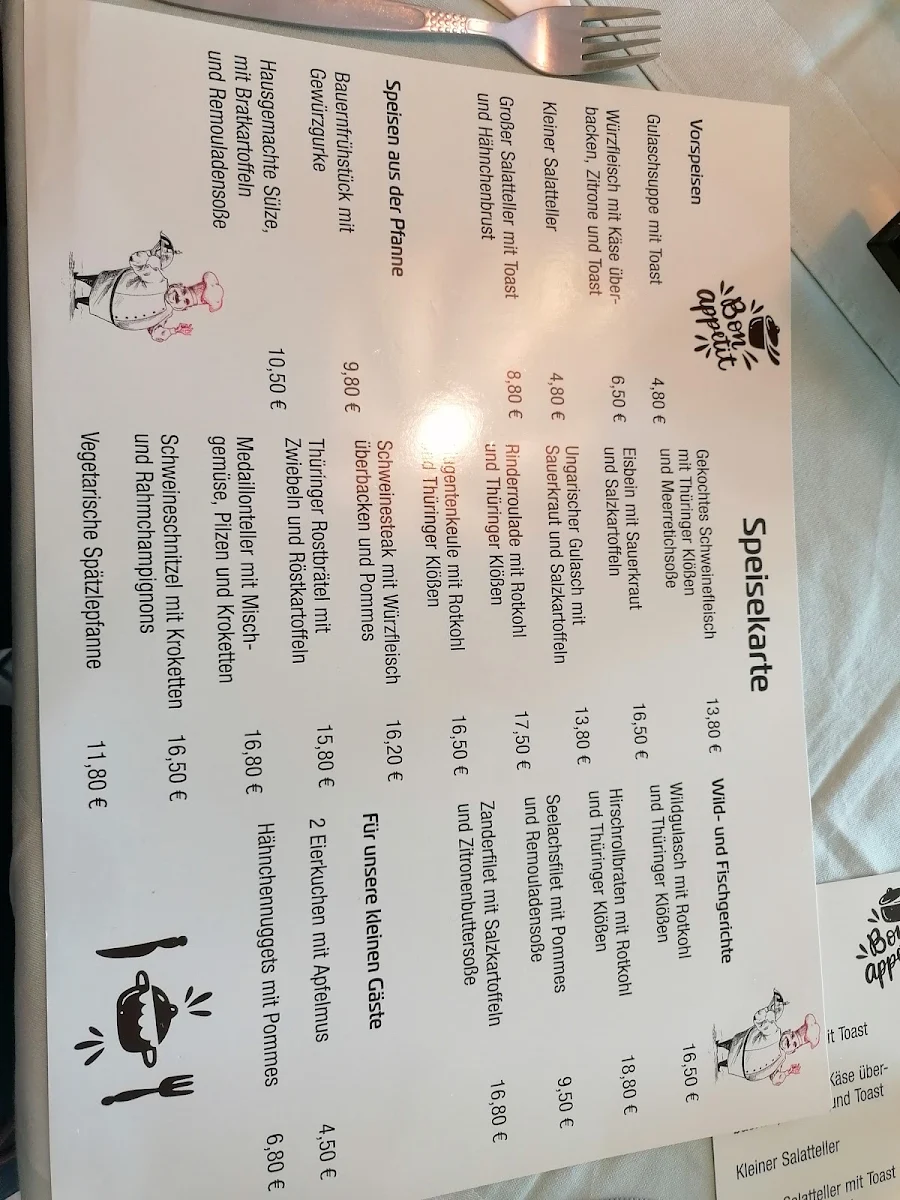 Bon
appetit
Speisekarte
Vorspeisen
Gulaschsuppe mit Toast 4,80 €
Würzfleisch mit Käse über-
backen, Zitrone und Toast 6,50 €
Kleiner Salatteller 4,80 €
Großer Salatteller mit Toast
und Hähnchenbrust 8,80 €
Speisen aus der Pfanne
Bauernfrühstück mit
Gewürzgurke 9,80 €
Hausgemachte Sülze,
mit Bratkartoffeln
und Remouladensoße 10,50 €
Gekochtes Schweinefleisch
mit Thüringer Klößen
und Meerretichsoße 13,80 €
Eisbein mit Sauerkraut
und Salzkartoffeln 16,50 €
Ungarischer Gulasch mit
Sauerkraut und Salzkartoffeln 13,80 €
Rinderroulade mit Rotkohl
und Thüringer Klößen 17,50 €
mit Rotkohl
Thüringer Klößen 16,50 €
Schweinesteak mit Würzfleisch
überbacken und Pommes 16,20 €
Thüringer Rostbrätel mit
Zwiebeln und Röstkartoffeln 15,80 €
Medaillonteller mit Misch-
gemüse, Pilzen und Kroketten 16,80 €
Schweineschnitzel mit Kroketten
und Rahmchampignons 16,50 €
Vegetarische Spätzlepfanne 11,80 €
Wild- und Fischgerichte
Wildgulasch mit Rotkohl
und Thüringer Klößen 16,50 €
Hirschrollbraten mit Rotkohl
und Thüringer Klößen 18,80 €
Seelachsfilet mit Pommes
und Remouladensoße 9,50 €
Zanderfilet mit Salzkartoffeln
und Zitronenbuttersoße 16,80 €
Für unsere kleinen Gäste
2 Eierkuchen mit Apfelmus 4,50 €
Hähnchennuggets mit Pommes 6,80 €
it Toast
Käse über-
und Toast
Kleiner Salatteller
mit Toast